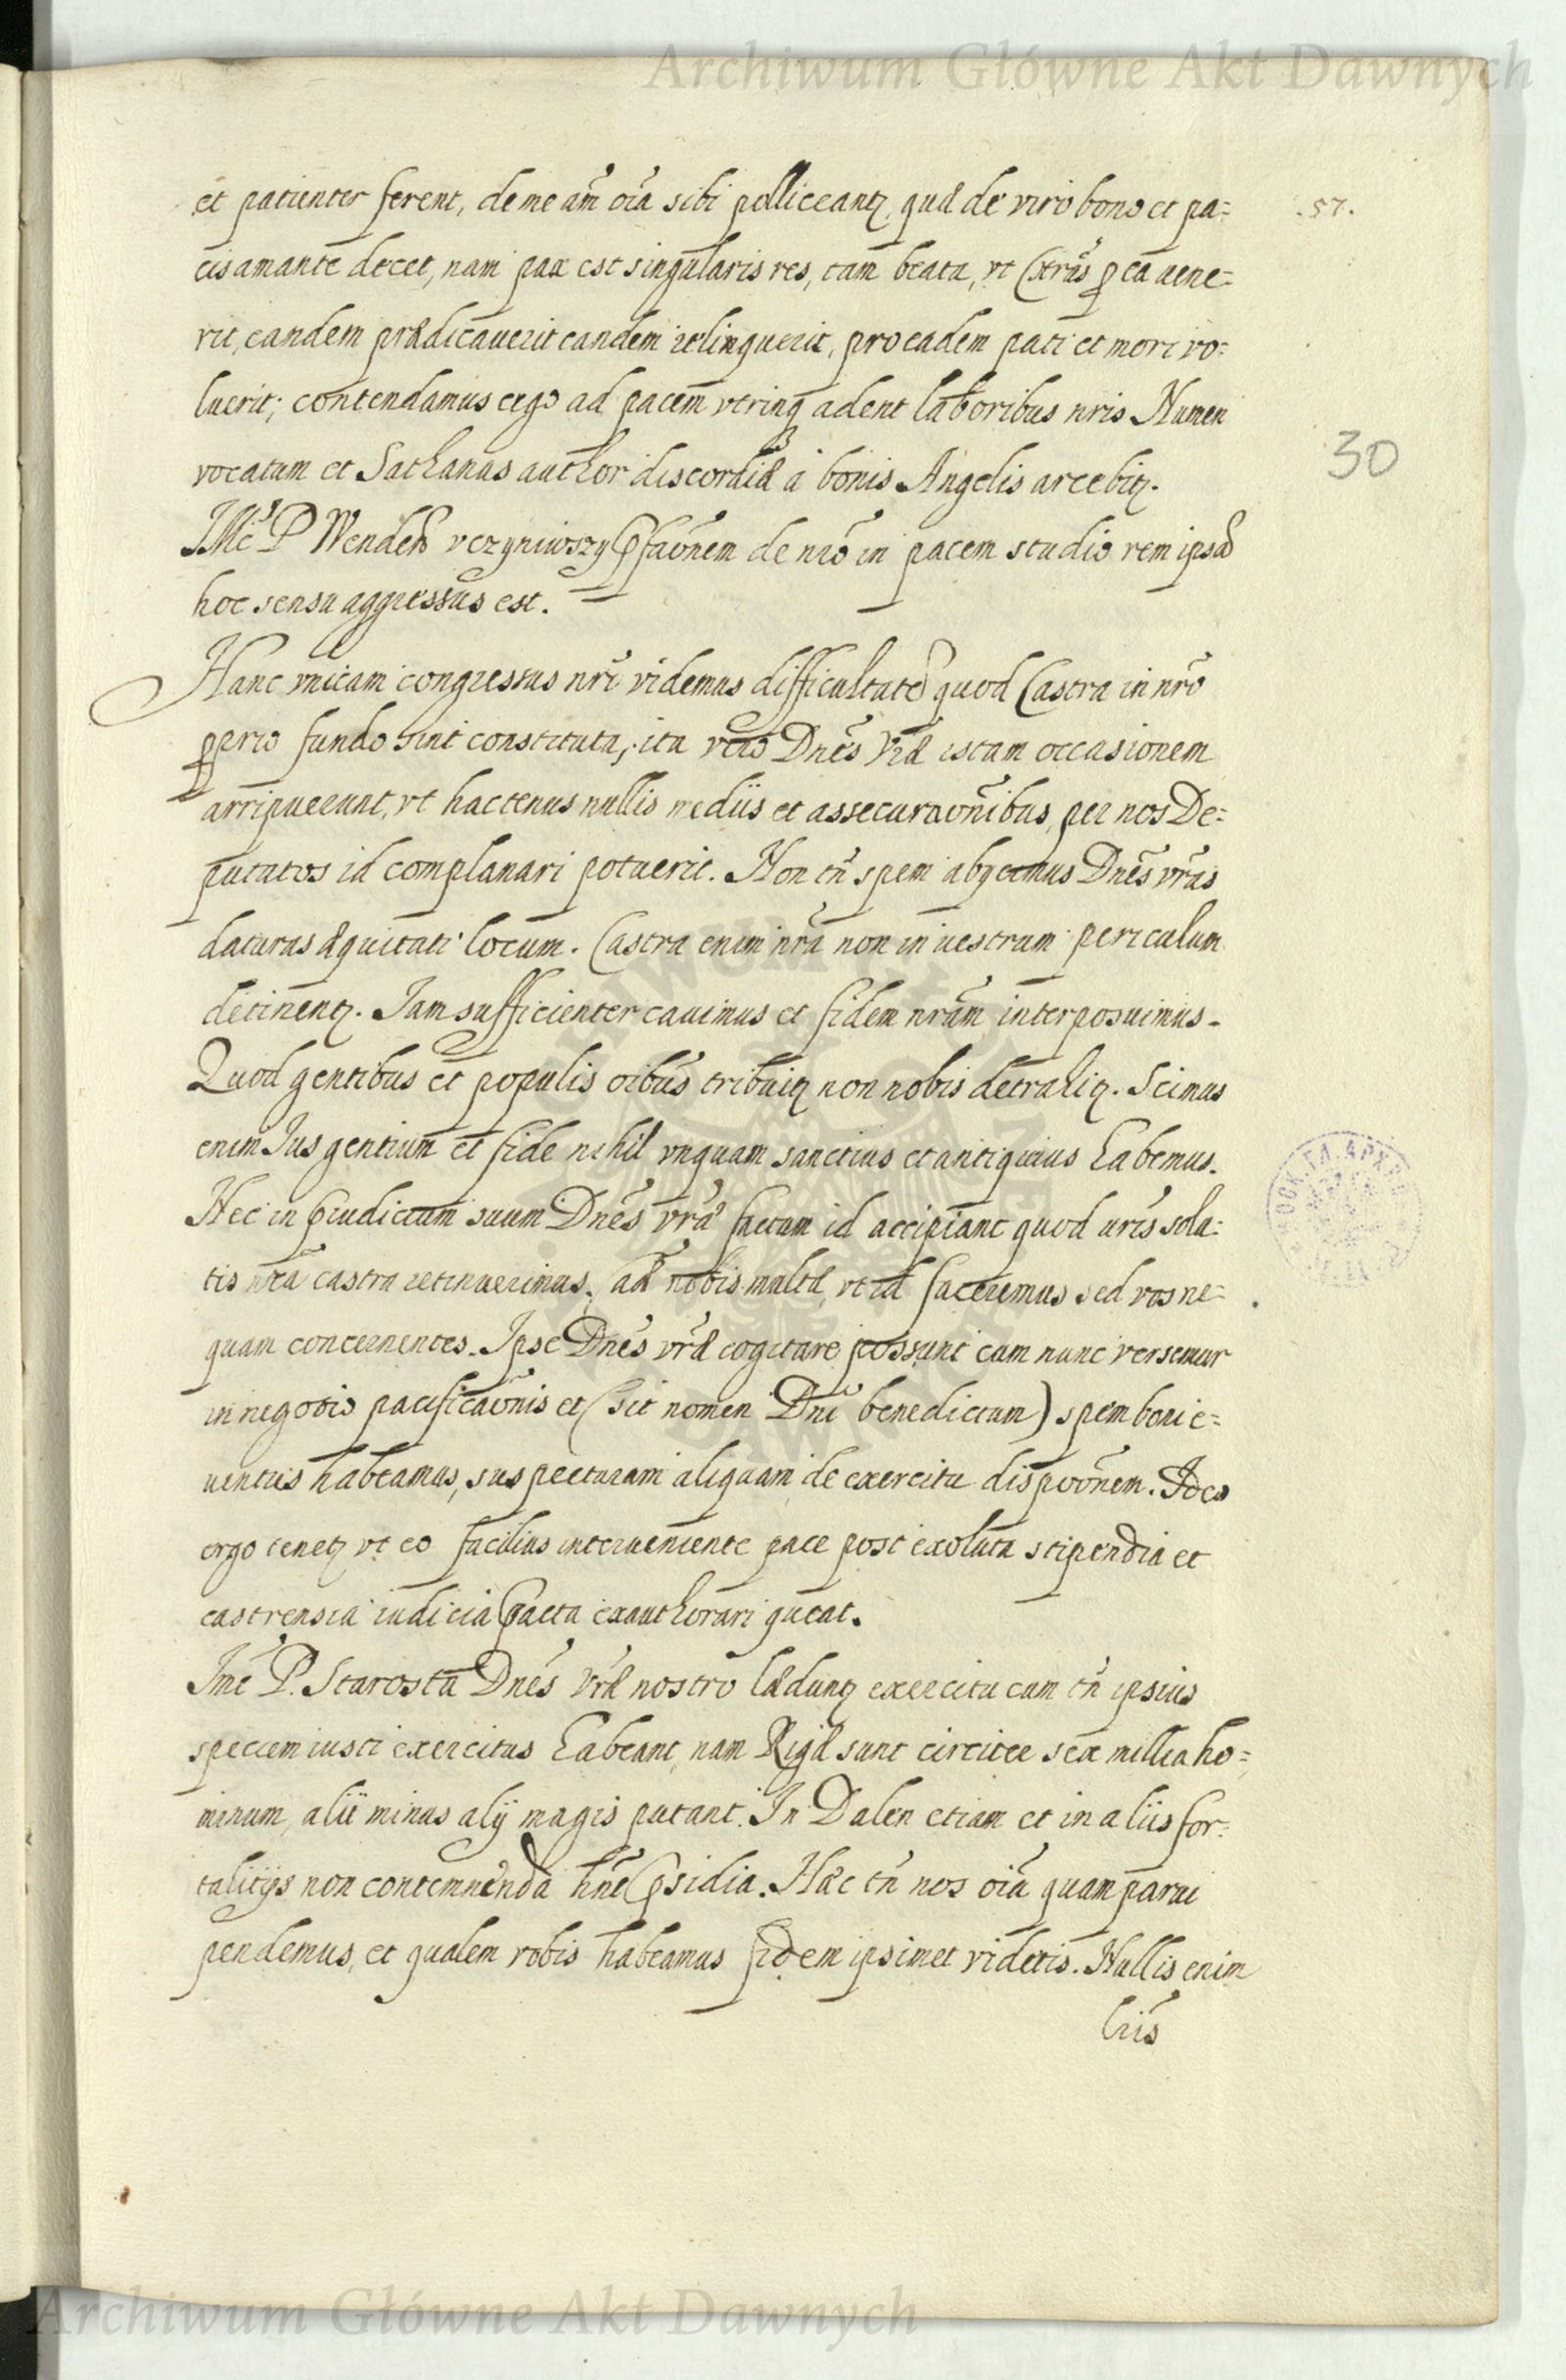 Archiwum Główne Akt Dawnych
et patienter ferent, de me am̃ oĩa sibi polliceantʒ, quæ de viro bono et pa= .57.
cis amante decet, nam pax est singularis res, tam beata, vt Chrũs ꝑ eã uene=
rit, eandem prædicauerit eandem relinquerit, pro eadem pati et mori vo=
luerit; contendamus ergo ad pacem vtrinqʒ aderit laboribus nr̃is Numen
30
vocatum et Sathanas author discordiæ à bonis Angelis arcebitʒ.
JMć P Wendeń vczyniwszy p̃faõnem de nr̃o in pacem studio rem ipsã
hoc sensu aggressus est.
Hanc vnicam congressus nr̃i videmus difficultatẽ quod Castra in nr̃o
ꝓprio fundo sint constituta, ita vero Dnẽs Vr̃æ istam occasionem
arripuerunt, vt hactenus nullis mediis et assecuraõnibus, per nos De=
putatos id complanari potuerit. Non tñ spem abycimus Dnẽs vr̃as
daturas æquitati locum. Castra enim nr̃a non in uestrum periculum
detinentʒ. Jam sufficienter cauimus et fidem nr̃am interposuimus.
Quod gentibus et populis oĩbus tribuitʒ non nobis detrahitʒ. Scimus
enim Jus gentium et fide nihil vnquam sanctius et antiquius habemus.
Nec in p̃iudicium suum Dnẽs vr̃æ factum id accipiant quod ur̃is solu=
tis nr̃a castra retinuerimus, ad nobis multa, vt id faceremus sed vos ne=
quam concernentes. Ipse Dnẽs vr̃æ cogitare possunt cum nunc versemur
in negotio pacificaõnis et (sit nomen Dnĩ benedictum) spem boni e=
uentus habeamus, suspecturam aliquam de exercitu dispoõnem. Ideo
ergo tenetʒ vt eo facilius interueniente pace post exoluta stipendia et
castrensia iudicia p̃acta exauthorari queat.
Jmć P. Starosta Dnẽs Vr̃æ nostro lædunʒ exercitu cum tñ ipsius
speciem iusti exercitus habeant, nam Rigæ sunt circiter sex millia ho=
minum, alii minus alÿ magis putant. In Dalen etiam et in aliis for=
talitÿs non contemnenda hñt p̃sidia. Hæc tñ nos oĩa quam parui
pendemus, et qualem vobis habeamus fidem ipsimet videtis. Nullis enim
lr̃is
Archiwum Główne Akt Dawnych